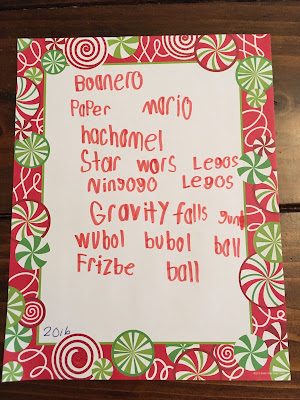 Boanero
Paper mario
hachamel
Star wors Legos
Ningogo Legos
Gravity falls
wubol bubol ball
Frizbe ball
2016